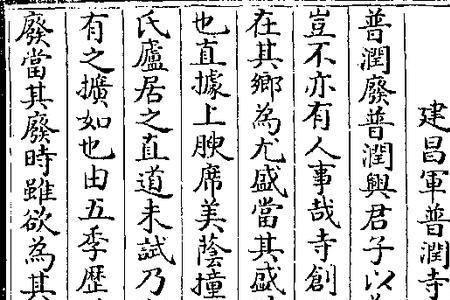 建昌軍普潤寺
普潤廢普潤興君子以
豈不亦有人事哉寺創
在其鄉為尤盛當其盛
也直據上腴席美蔭撞
氏廬居之直道未試乃
有之擴如也由五季歷
廢當其廢時雖欲為其